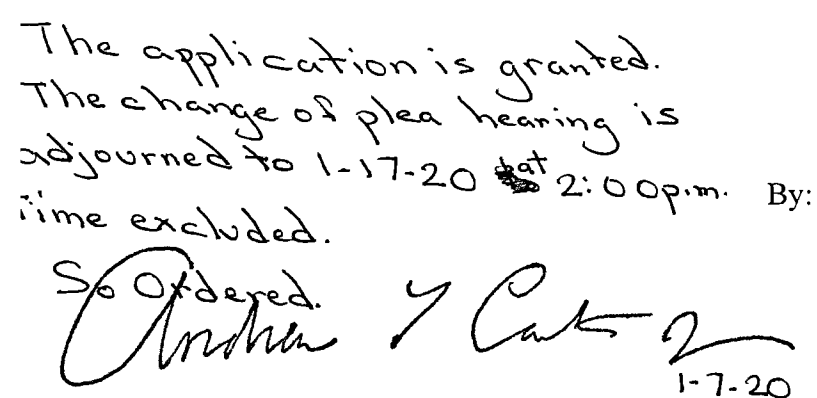 The application is granted.
The change of plea hearing is
adjourned to 1-17-20 at 2:00p.m. By:
Time excluded.
So Ordered.
Andrew Y Carter
1-7-20